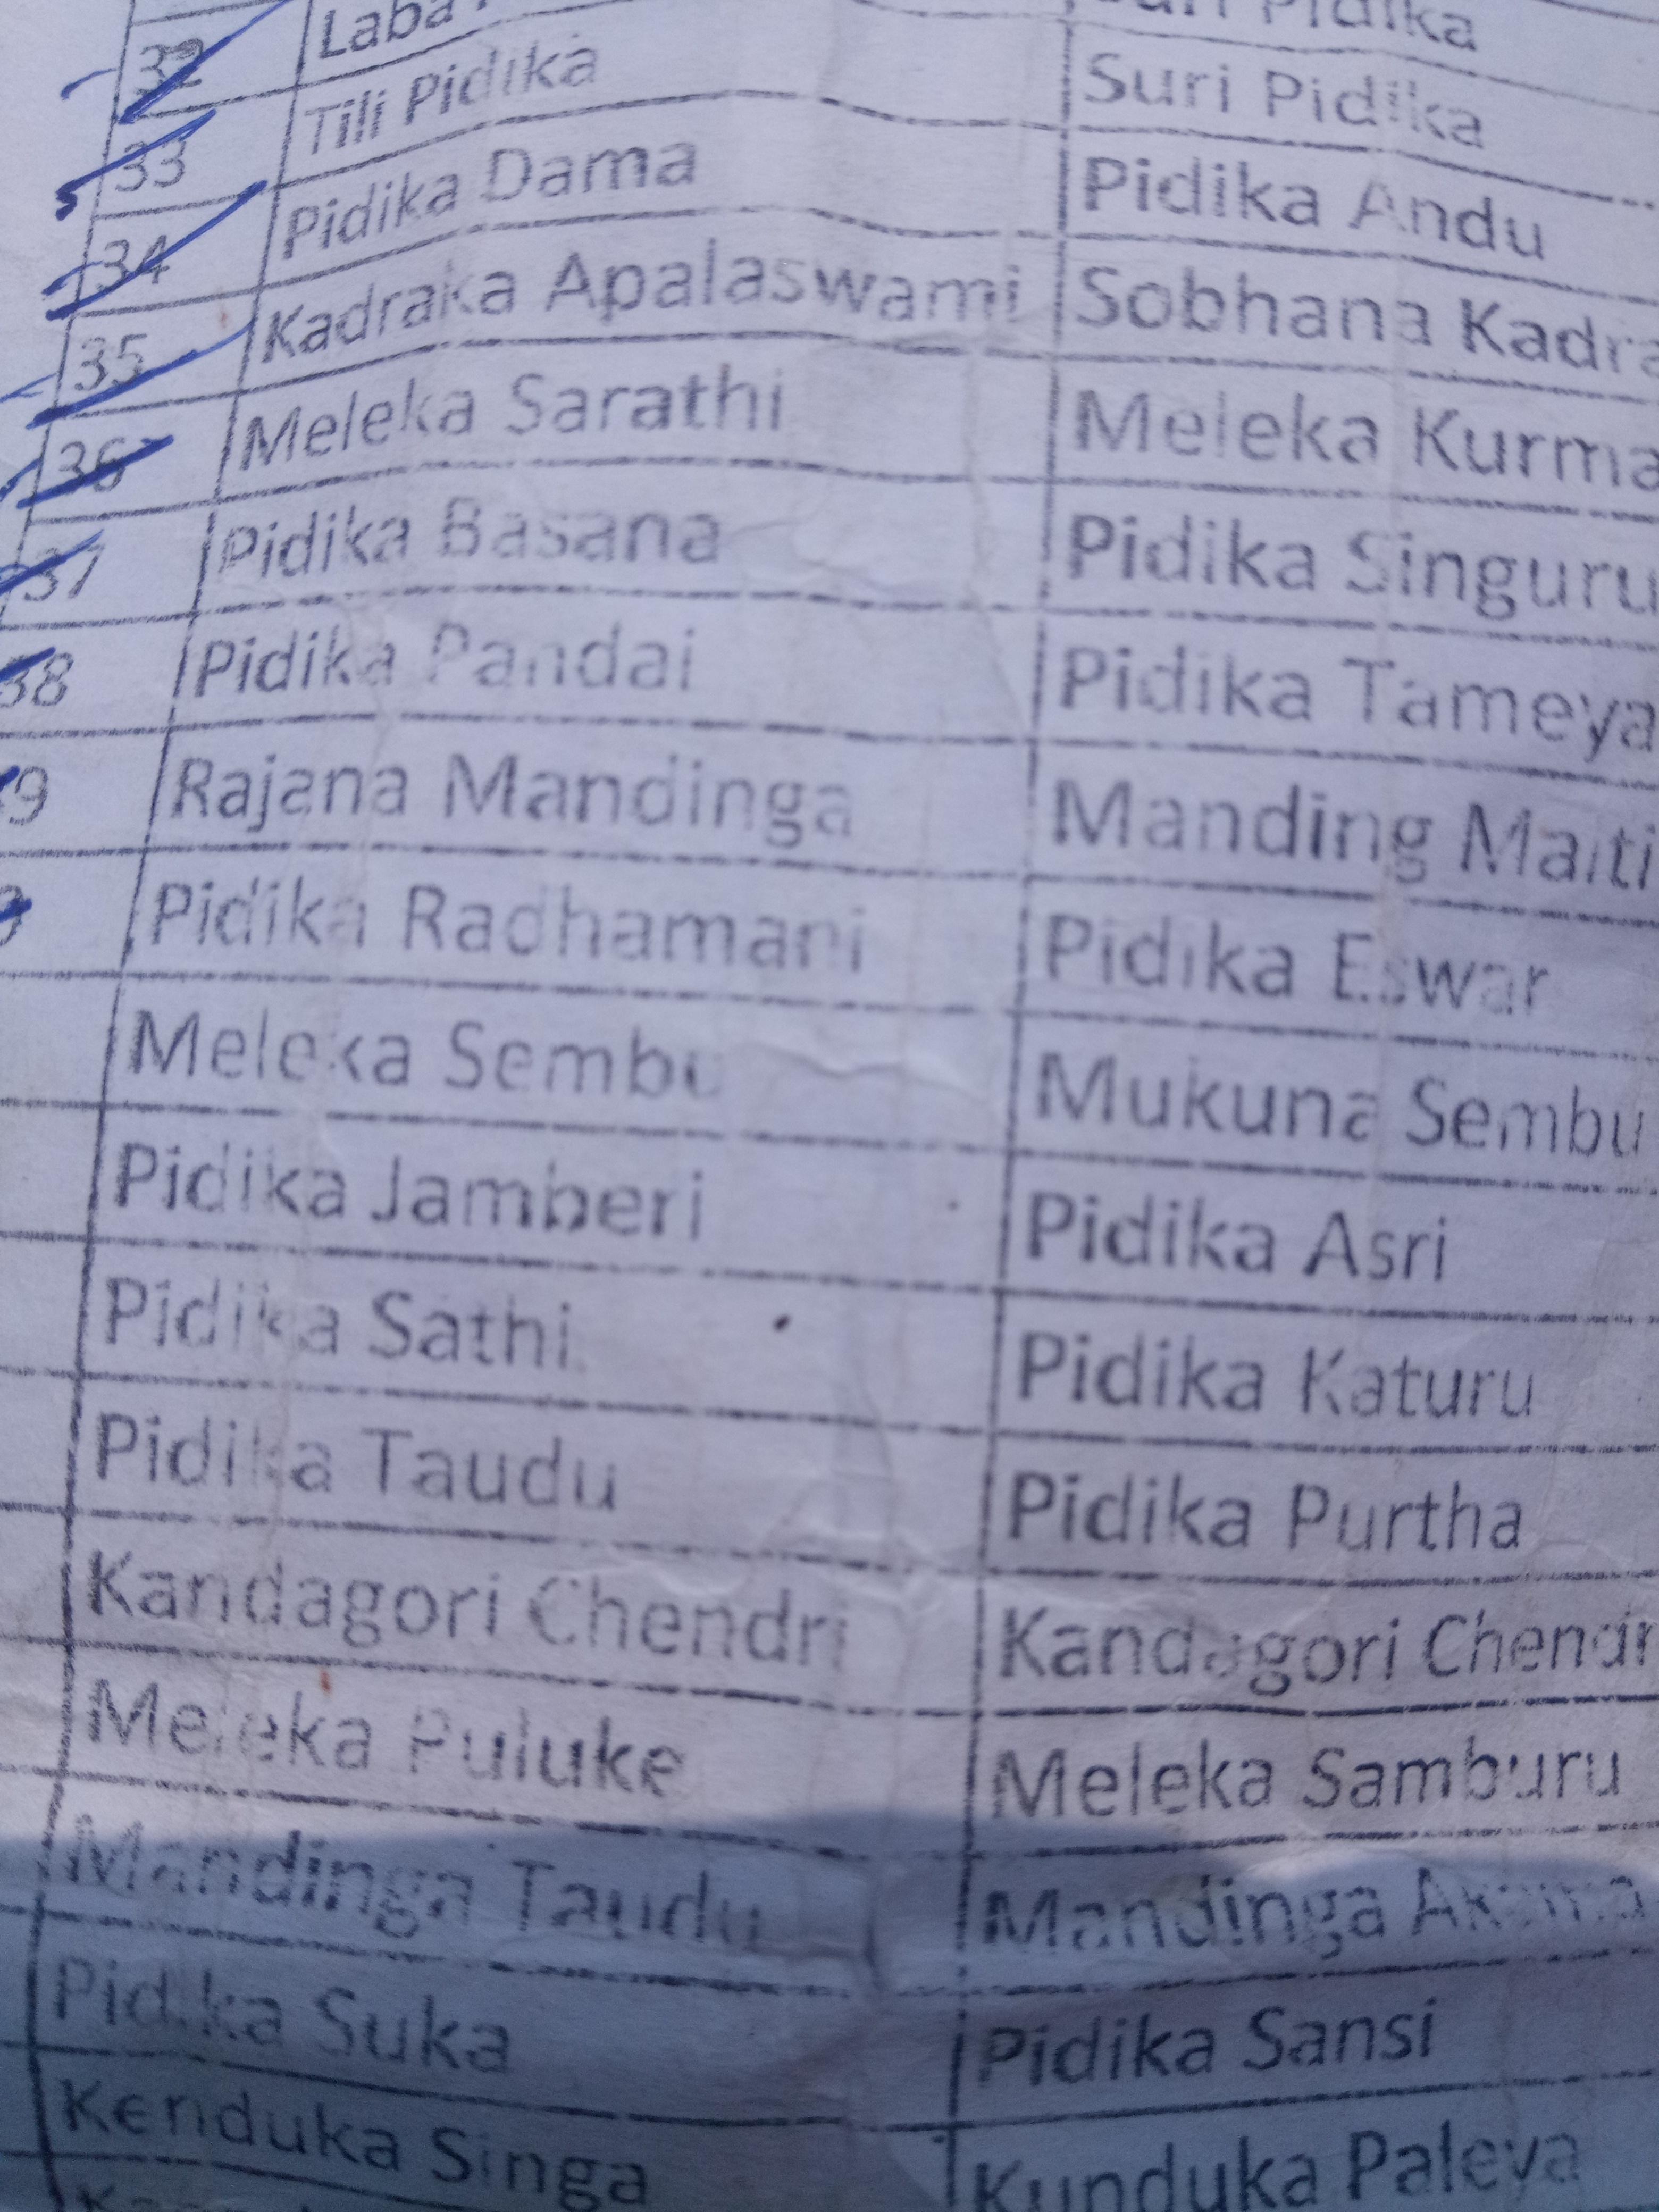 32 Laba Pidika
33 Tili Pidika Suri Pidika
34 Pidika Dama Pidika Andu
35 Kadraka Apalaswami Sobhana Kadra
36 Meleka Sarathi Meleka Kurma
37 Pidika Basana Pidika Singuru
38 Pidika Pandai Pidika Tameya
9 Rajana Mandinga Manding Maiti
Pidika Radhamani Pidika Eswar
Meleka Sembu Mukuna Sembu
Pidika Jamberi Pidika Asri
Pidika Sathi Pidika Katuru
Pidika Taudu Pidika Purtha
Kandagori Chendri Kandagori Chendr
Meleka Puluke Meleka Samburu
Mandinga Taudu Mandinga
Pidika Suka Pidika Sansi
Kenduka Singa Kunduka Paleya